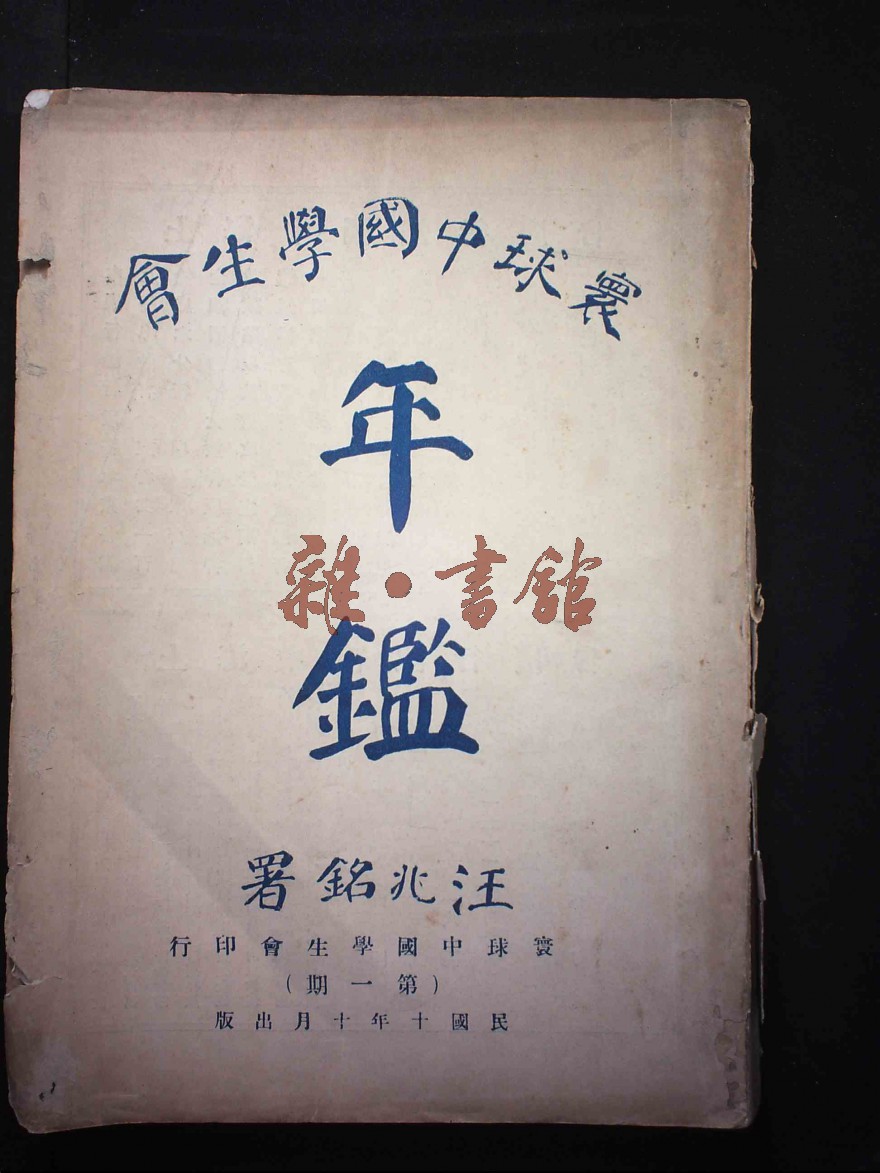 寰球中國學生會
年
雜•書館
鑑
汪兆銘署
寰球中國學生會印行
(第一期)
民國十年十月出版